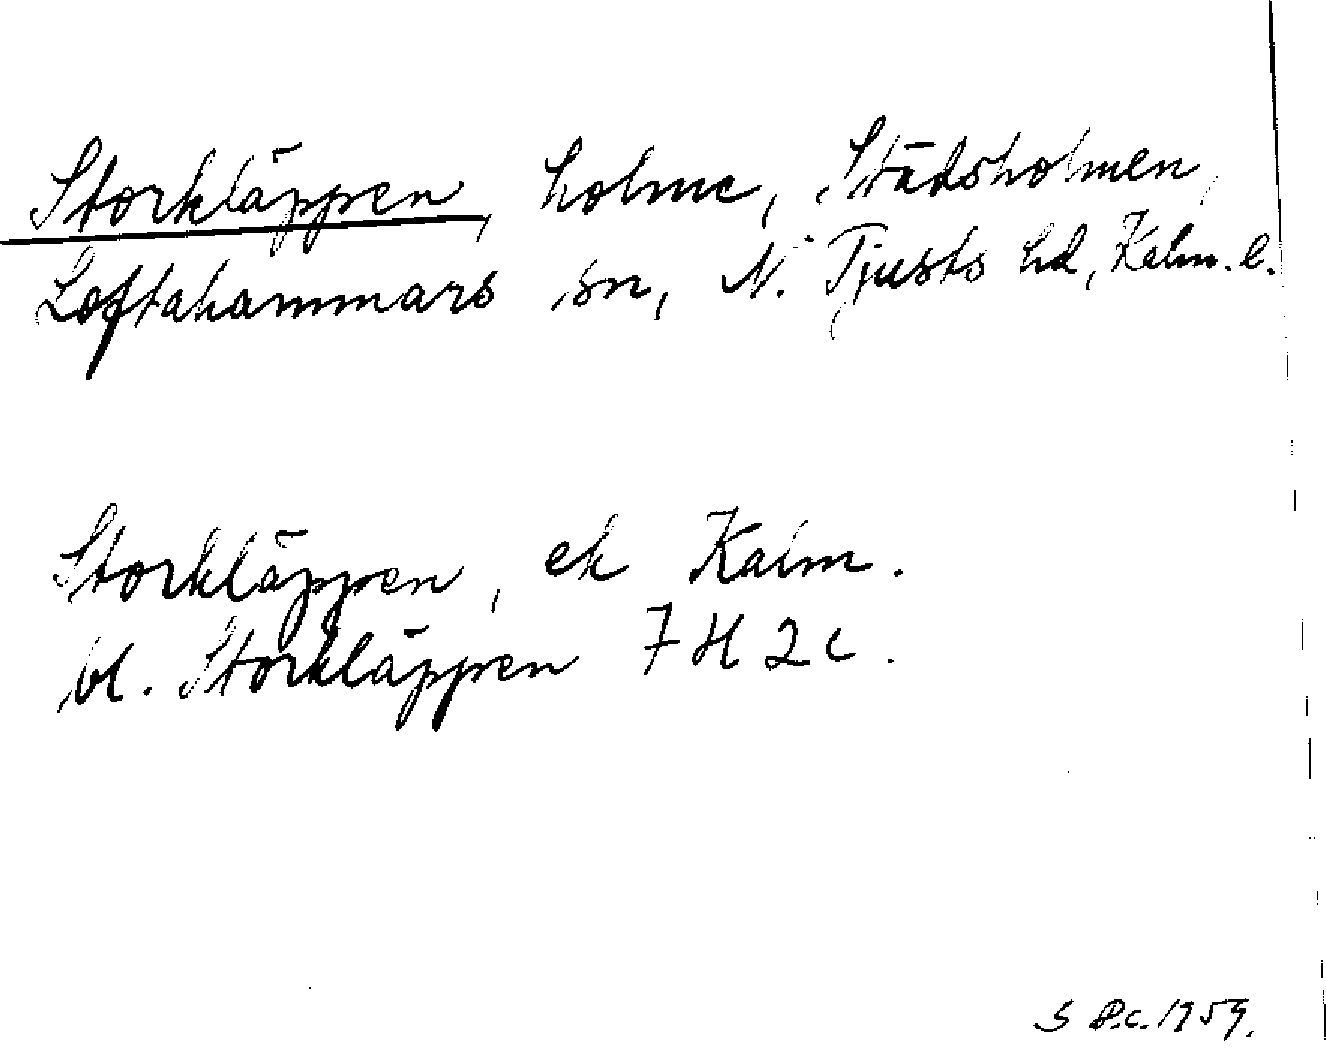 Storkläppen, holme, Städsholmen,
Loftahammars sn, N. Tjusts hd, Kalm. l.
Storkläppen, ek Kalm.
bl. Storkläppen 7H2c.
S 1959.